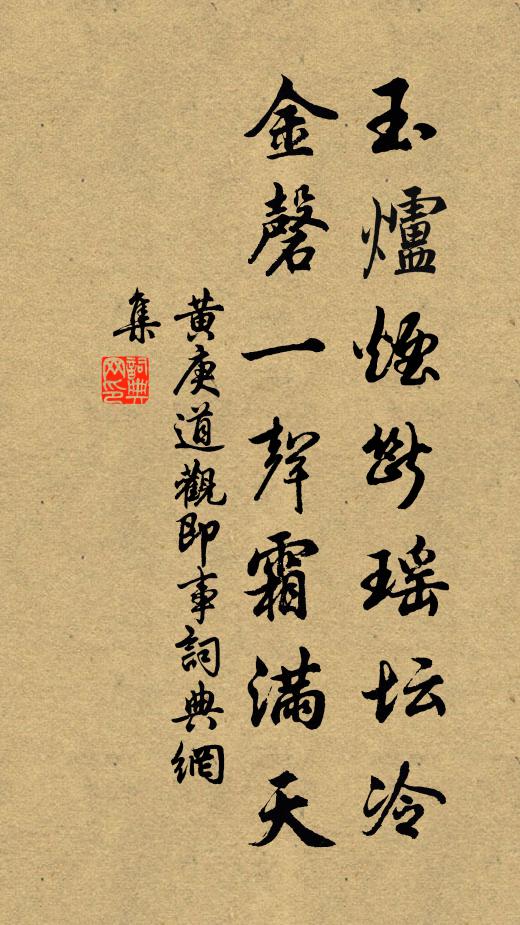 玉爐煙斷瑶坛冷
金磬一聲霜滿天
黄庚道觀即事詞典網
集
詞典
网印